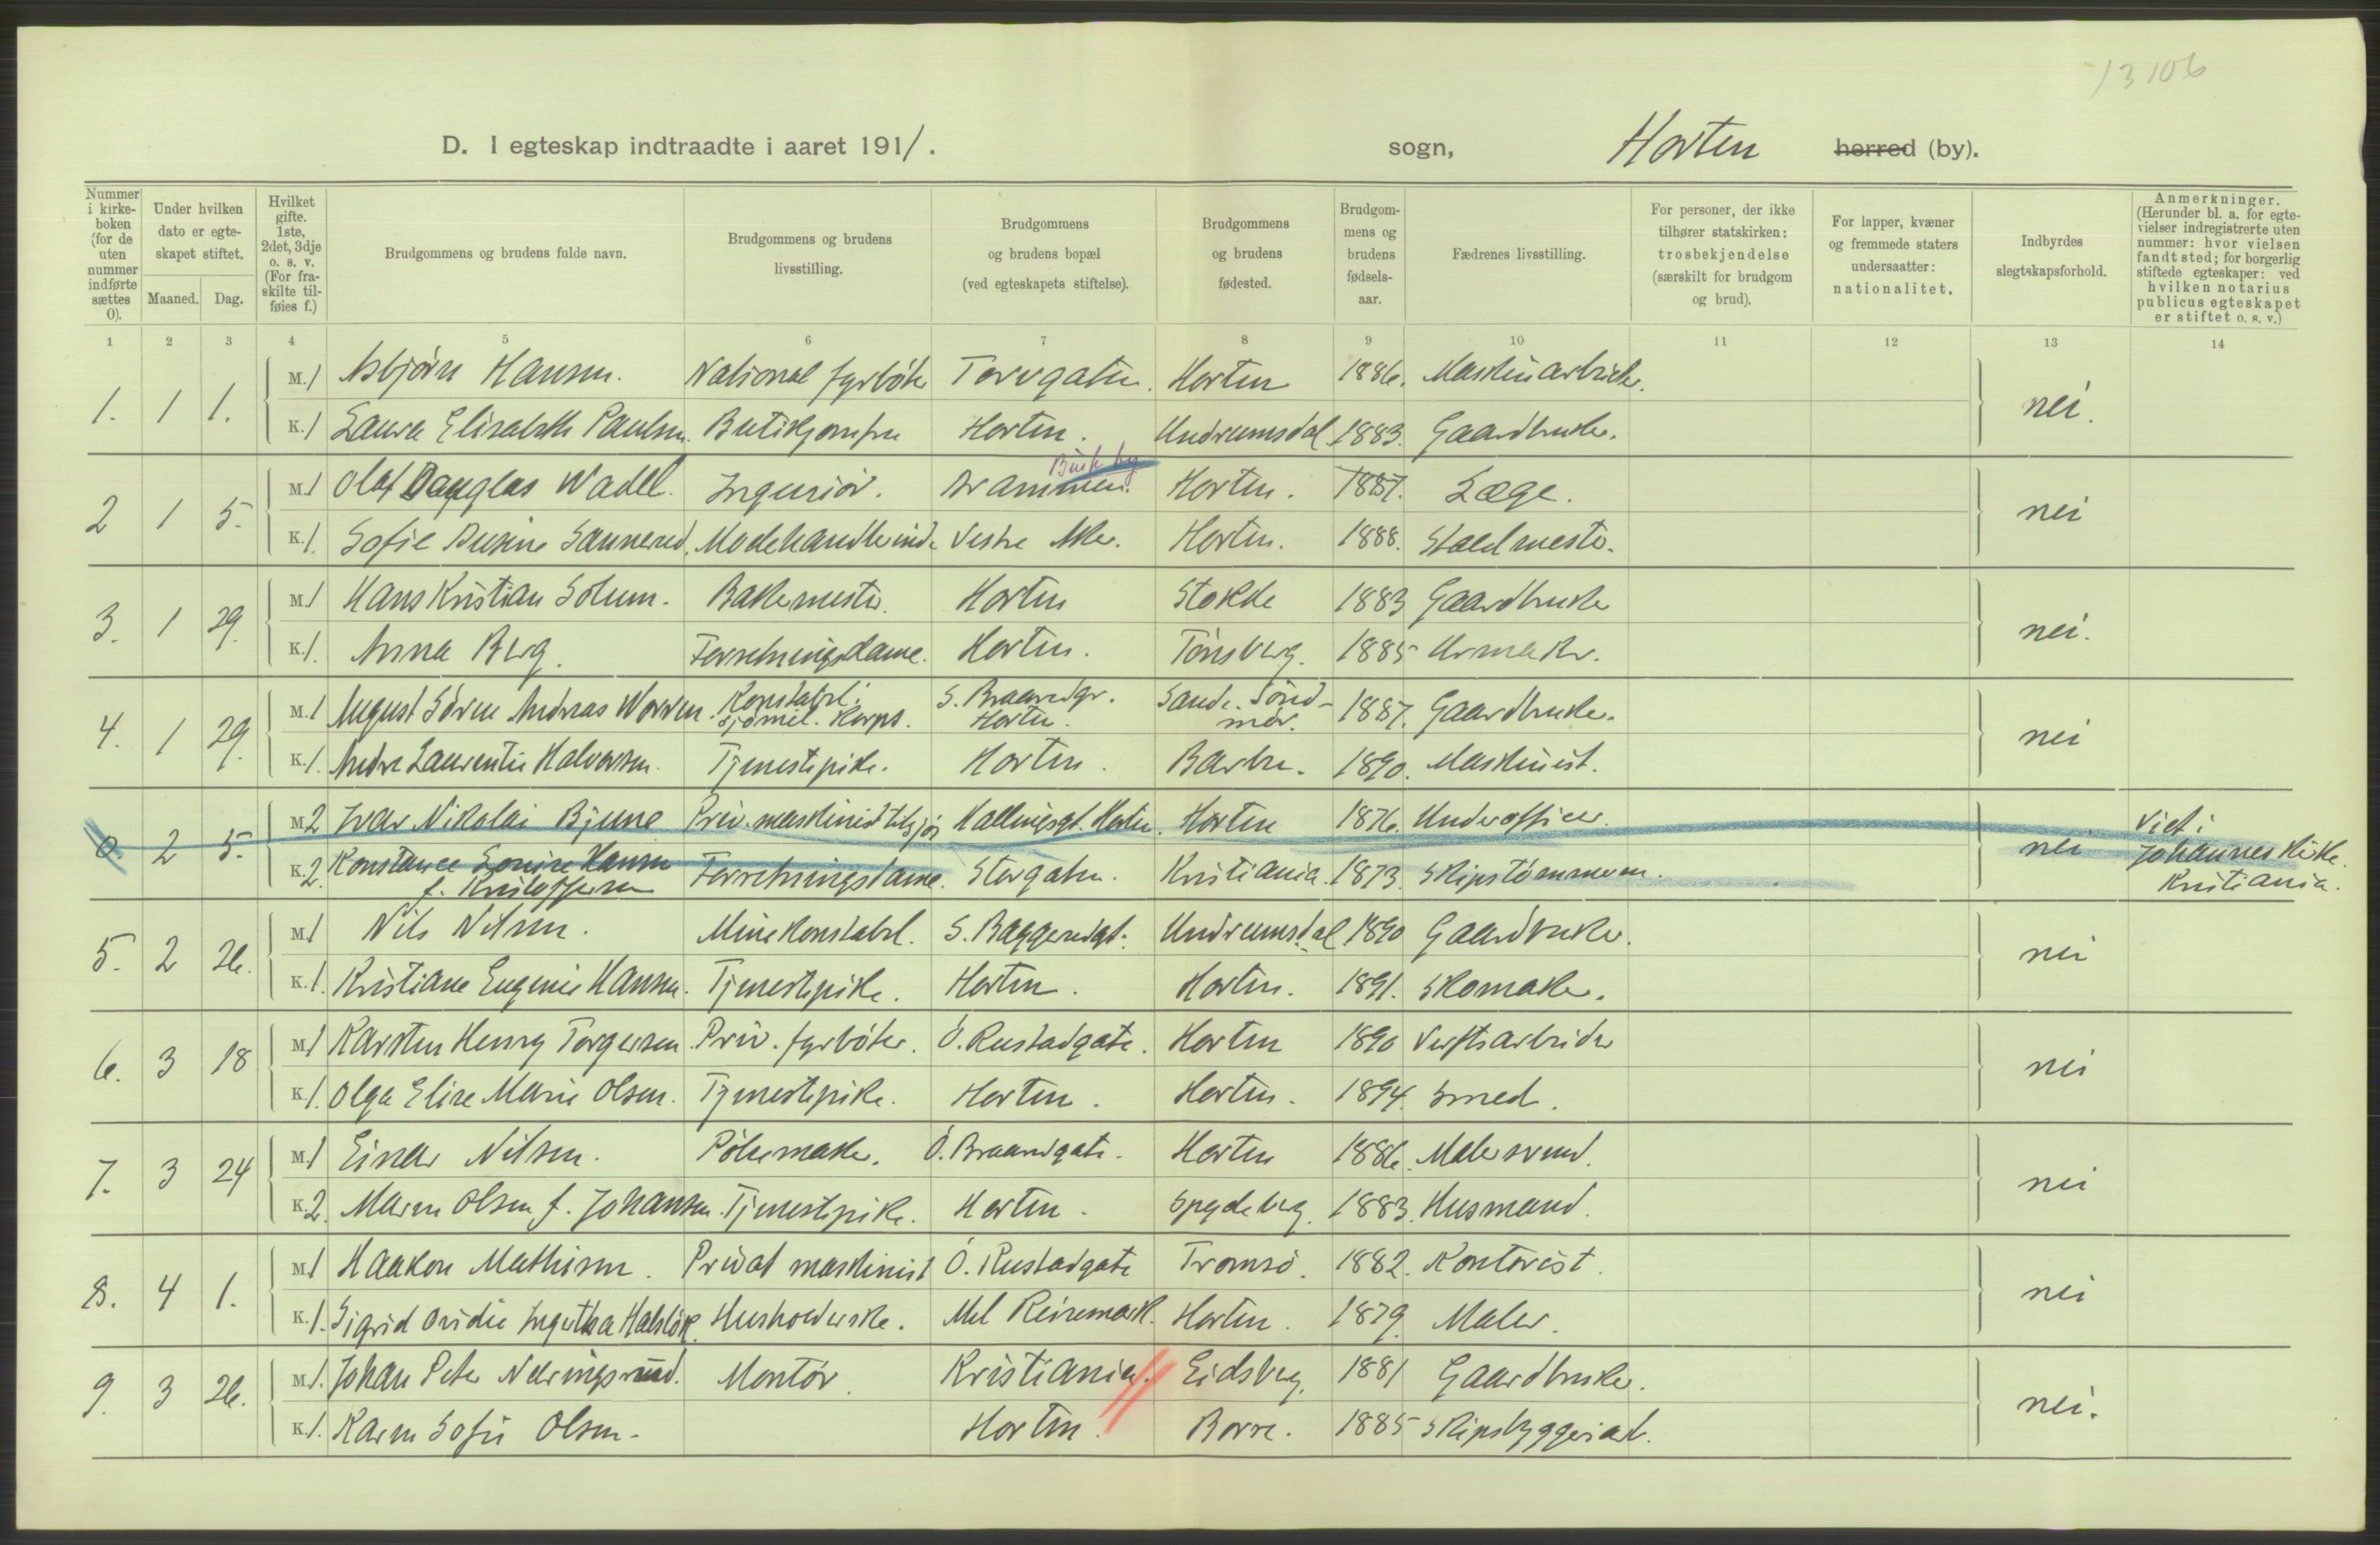 13106
D. I egteskap indtraadte i aaret 1911. sogn, Horten herred (by).
Nummer i kirkeboken (for de uten nummer indførte sættes 0).
Under hvilken dato er egteskapet stiftet.
Maaned. Dag.
Hvilket gifte. 1ste, 2det, 3dje o. s. v. (For fraskilte tilføies f.)
Brudgommens og brudens fulde navn.
Brudgommens og brudens livsstilling.
Brudgommens og brudens bopæl (ved egteskapets stiftelse).
Brudgommens og brudens fødested.
Brudgommens og brudens fødselsaar.
Fædrenes livsstilling.
For personer, der ikke tilhører statskirken: trosbekjendelse (særskilt for brudgom og brud).
For lapper, kvæner og fremmede staters undersaatter: nationalitet.
Indbyrdes slegtskapsforhold.
Anmerkninger. (Herunder bl. a. for egtevielser indregistrerte uten nummer: hvor vielsen fandt sted; for borgerlig stiftede egteskaper: ved hvilken notarius publicus egteskapet er stiftet o. s. v.)
1 2 3 4 5 6 7 8 9 10 11 12 13 14
1. 1 1. M. 1 Asbjørn Hansen. National fyrbøter Torvgaten. Horten 1886. Maskinarbeider. nei.
K. 1 Laura Elisabeth Paulsen. Butikjomfru Horten. Undrumsdal 1883. Gaardbruker.
Busk by
2 1 5. M. 1 Olaf Douglas Wadel. Ingeniør. Drammen. Horten. 1887. Læge. nei
K. 1. Sofie Sannerud. Modehandlerinde Vestre Aker. Horten. 1888. Staldmester.
3. 1 29. M. 1 Hans Kristian Solum. Bakermester. Horten Stokke 1883 Gaardbruker nei.
K. 1. Anna Berg. Forretningsdame. Horten. Tønsberg. 1885 Urmaker.
4. 1 29. M. 1 August Søren Andreas Worren. Konstabel i Sjømil. Korps. S. Braarudgt. Horten. Sande. Søndmør. 1887. Gaardbruker. nei
K. 1. Andre Laurentie Halvorsen. Tjenestepike. Horten. Barbu. 1890. Maskinist.
0. 2 5. M. 2 Ivar Nikolai Bjune Priv. maskinist tilsjøs Hallingsgt. Horten. Horten 1876. Underofficer. nei Viet i Johannes kirke. Kristiania.
K. 2. Konstance Louise Hansen f. Kristoffersen Forretningsdame. Storgaten. Kristiania. 1873. Skipstømmerm.
5. 2 26. M. 1 Nils Nilsen. Minekonstabel. S. Baggerudgt. Undrumsdal 1890 Gaardbruker. nei
K. 1. Kristiane Eugenie Hansen. Tjenestepike. Horten. Horten. 1891. Skomaker.
6. 3 18 M. 1 Karsten Henry Torgersen. Priv. fyrbøter. Ø. Rustadgate. Horten 1890 Verftsarbeider nei
K. 1. Olga Elise Marie Olsen. Tjenestepike. Horten. Horten. 1894. Smed.
7. 3 24 M. 1 Einar Nilsen. Pølsemaker. Ø. Braarudgate. Horten 1886. Malersvend. nei
K. 2. Maren Olsen f. Johansen. Tjenestepike. Horten. Spydeberg. 1883. Husmand.
8. 4 1. M. 1 Haakon Mathisen. Privat maskinist Ø. Rustadgate Tromsø. 1882. Kontorist. nei
K. 1. Sigrid Ovidie Halsløk. Husholderske. Mel Reiremark. Horten. 1879. Maler.
9. 3 26. M. 1. Johan Peter Næringsrud. Montør. Kristiania. Eidsberg. 1881 Gaardbruker. nei.
K. 1. Karen Sofie Olsen. Horten. Borre. 1885 Skipsbyggeriarb.